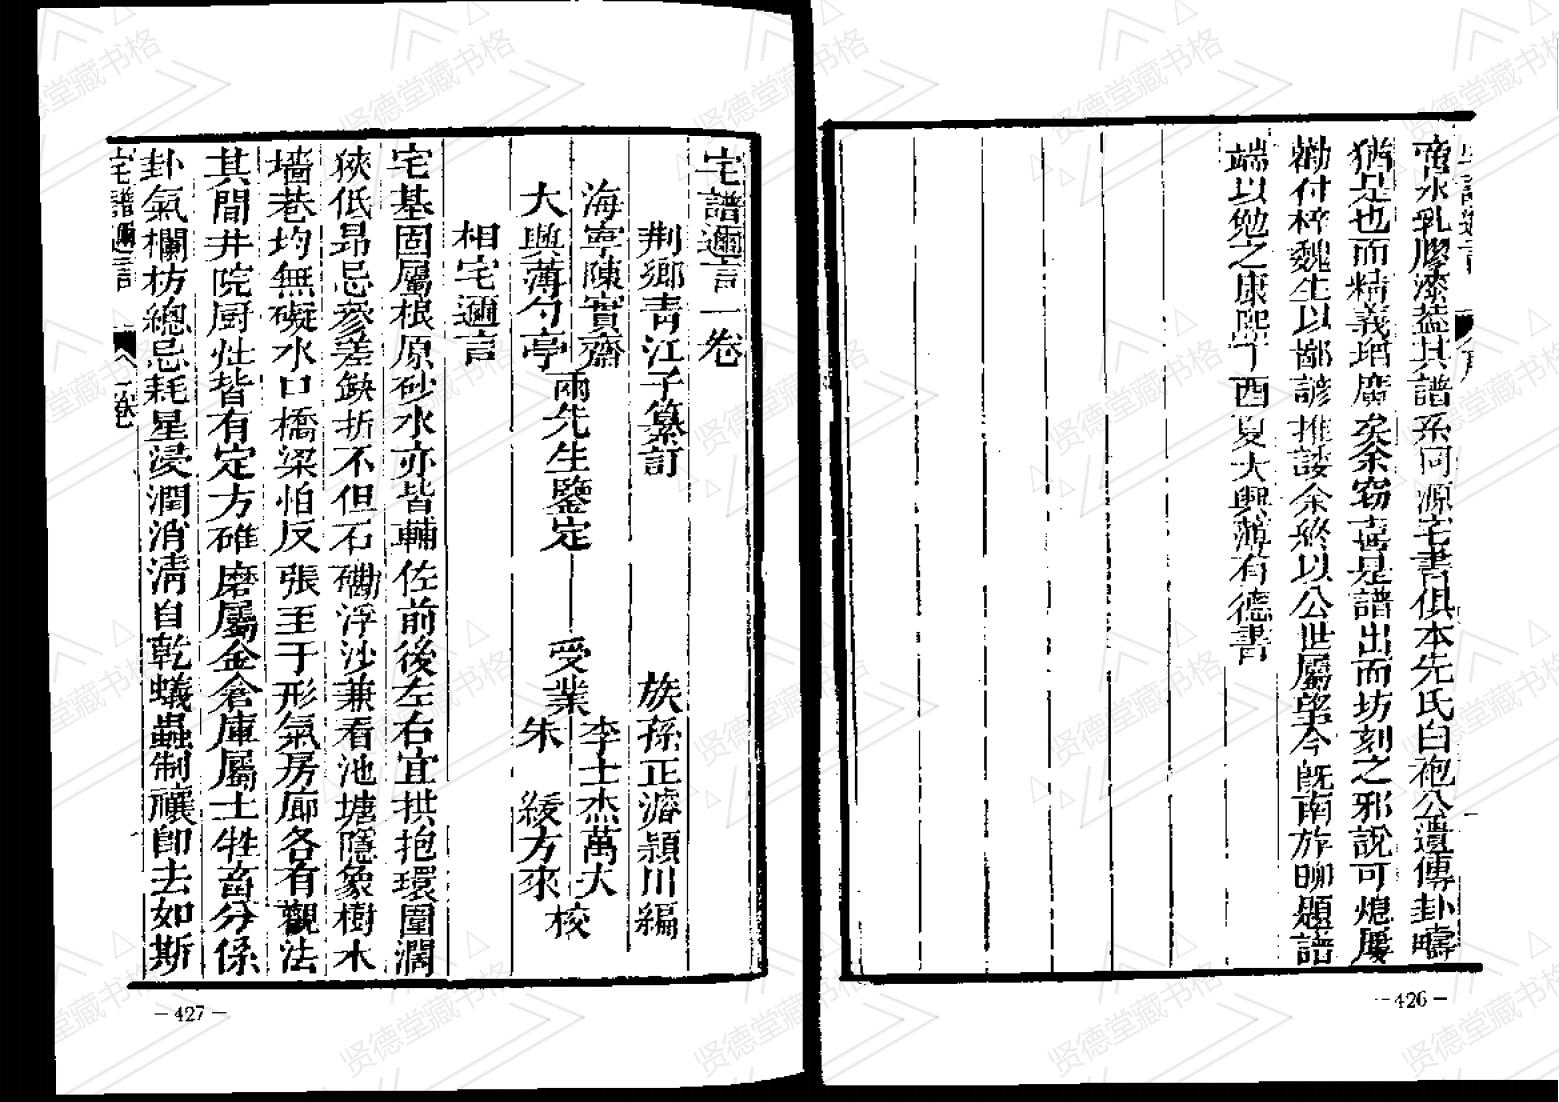 宅譜邇言
啻水乳膠漆葢其譜系同源宅書俱本先氏白袍公遺傳卦疇
猶是也而精義増廣矣余窃喜是譜出而坊刻之邪說可熄屢
勸付梓魏生以鄙諺推諉余終以公世屬望今旣南旋聊題譜
端以勉之康熙丁酉夏大興薄有德書
-426-
宅譜邇言一卷
荆鄉青江子纂訂 族孫正濬頴川編
海寧陳實齋
大興薄勺亭
兩先生鑒定
受業
李士杰萬大
朱 綬方來
校
相宅邇言
宅基固屬根原砂水亦皆輔佐前後左右宜拱抱環圍濶
狹低昂忌參差缺折不但石磡浮沙兼看池塘隱象樹木
墻巷均無礙水口橋梁怕反張至于形氣房廊各有觀法
其間井院厨灶皆有定方碓磨屬金倉庫屬土牲畜分係
卦氣欄枋總忌耗星浸潤消淸自乾蟻蟲制禳卽去如斯
宅譜邇言 一卷
-427-
贤德堂藏书格